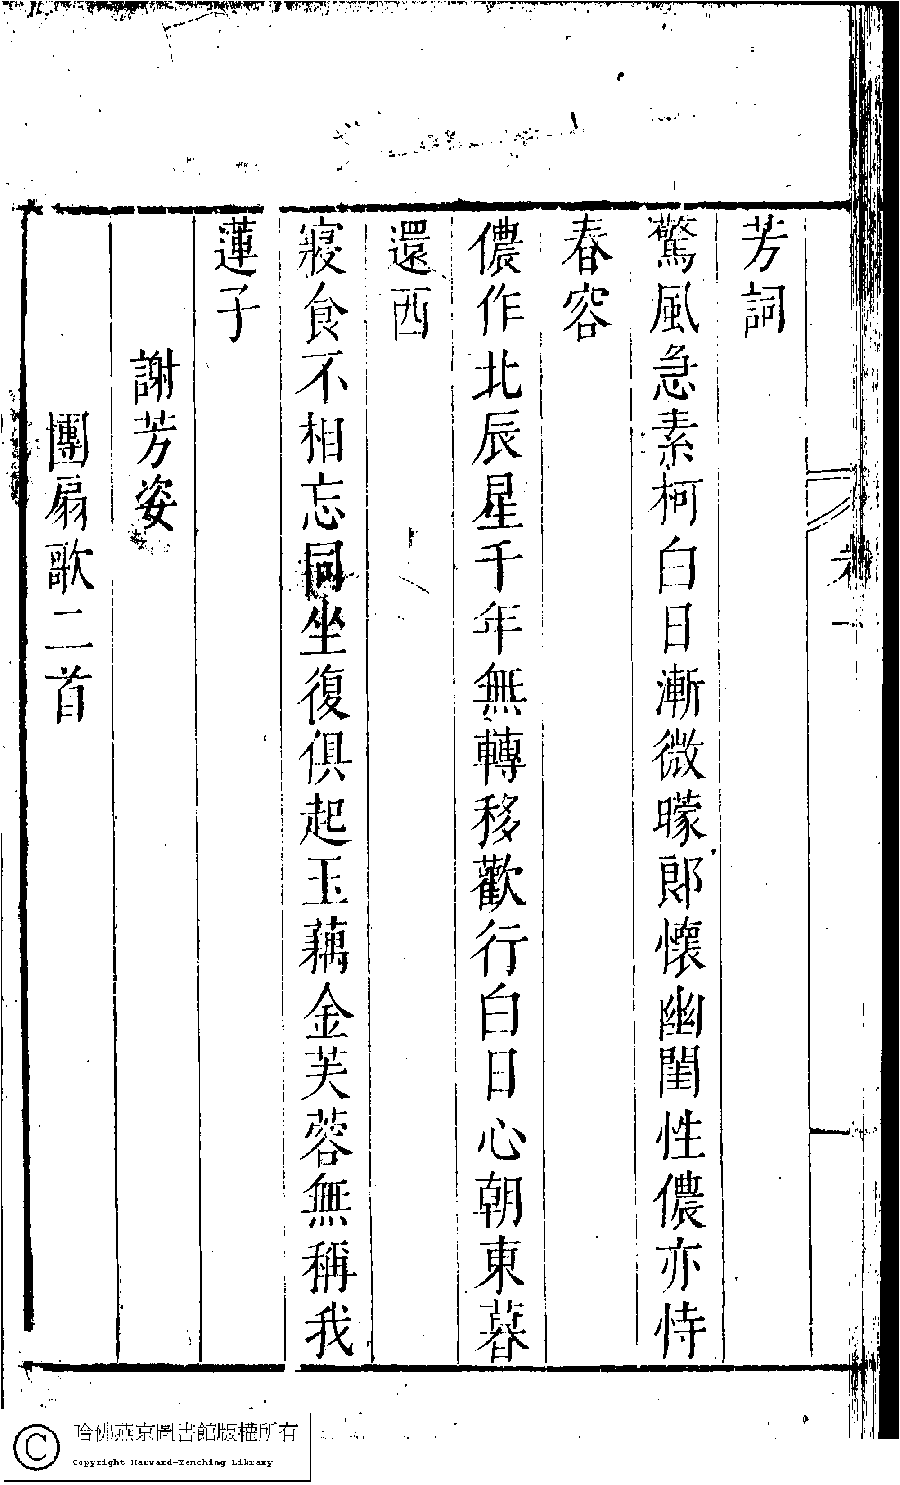 芳詞
驚風急素柯白日漸微曚郎懷幽閨性儂亦恃
春容
儂作北辰星千年無轉移歡行白日心朝東暮
還西
寢食不相忘同坐復俱起玉藕金芙蓉無稱我
蓮子
謝芳姿
團扇歌二首
卷一
哈佛燕京圖書館版權所有
Copyright Harvard-Yenching Library